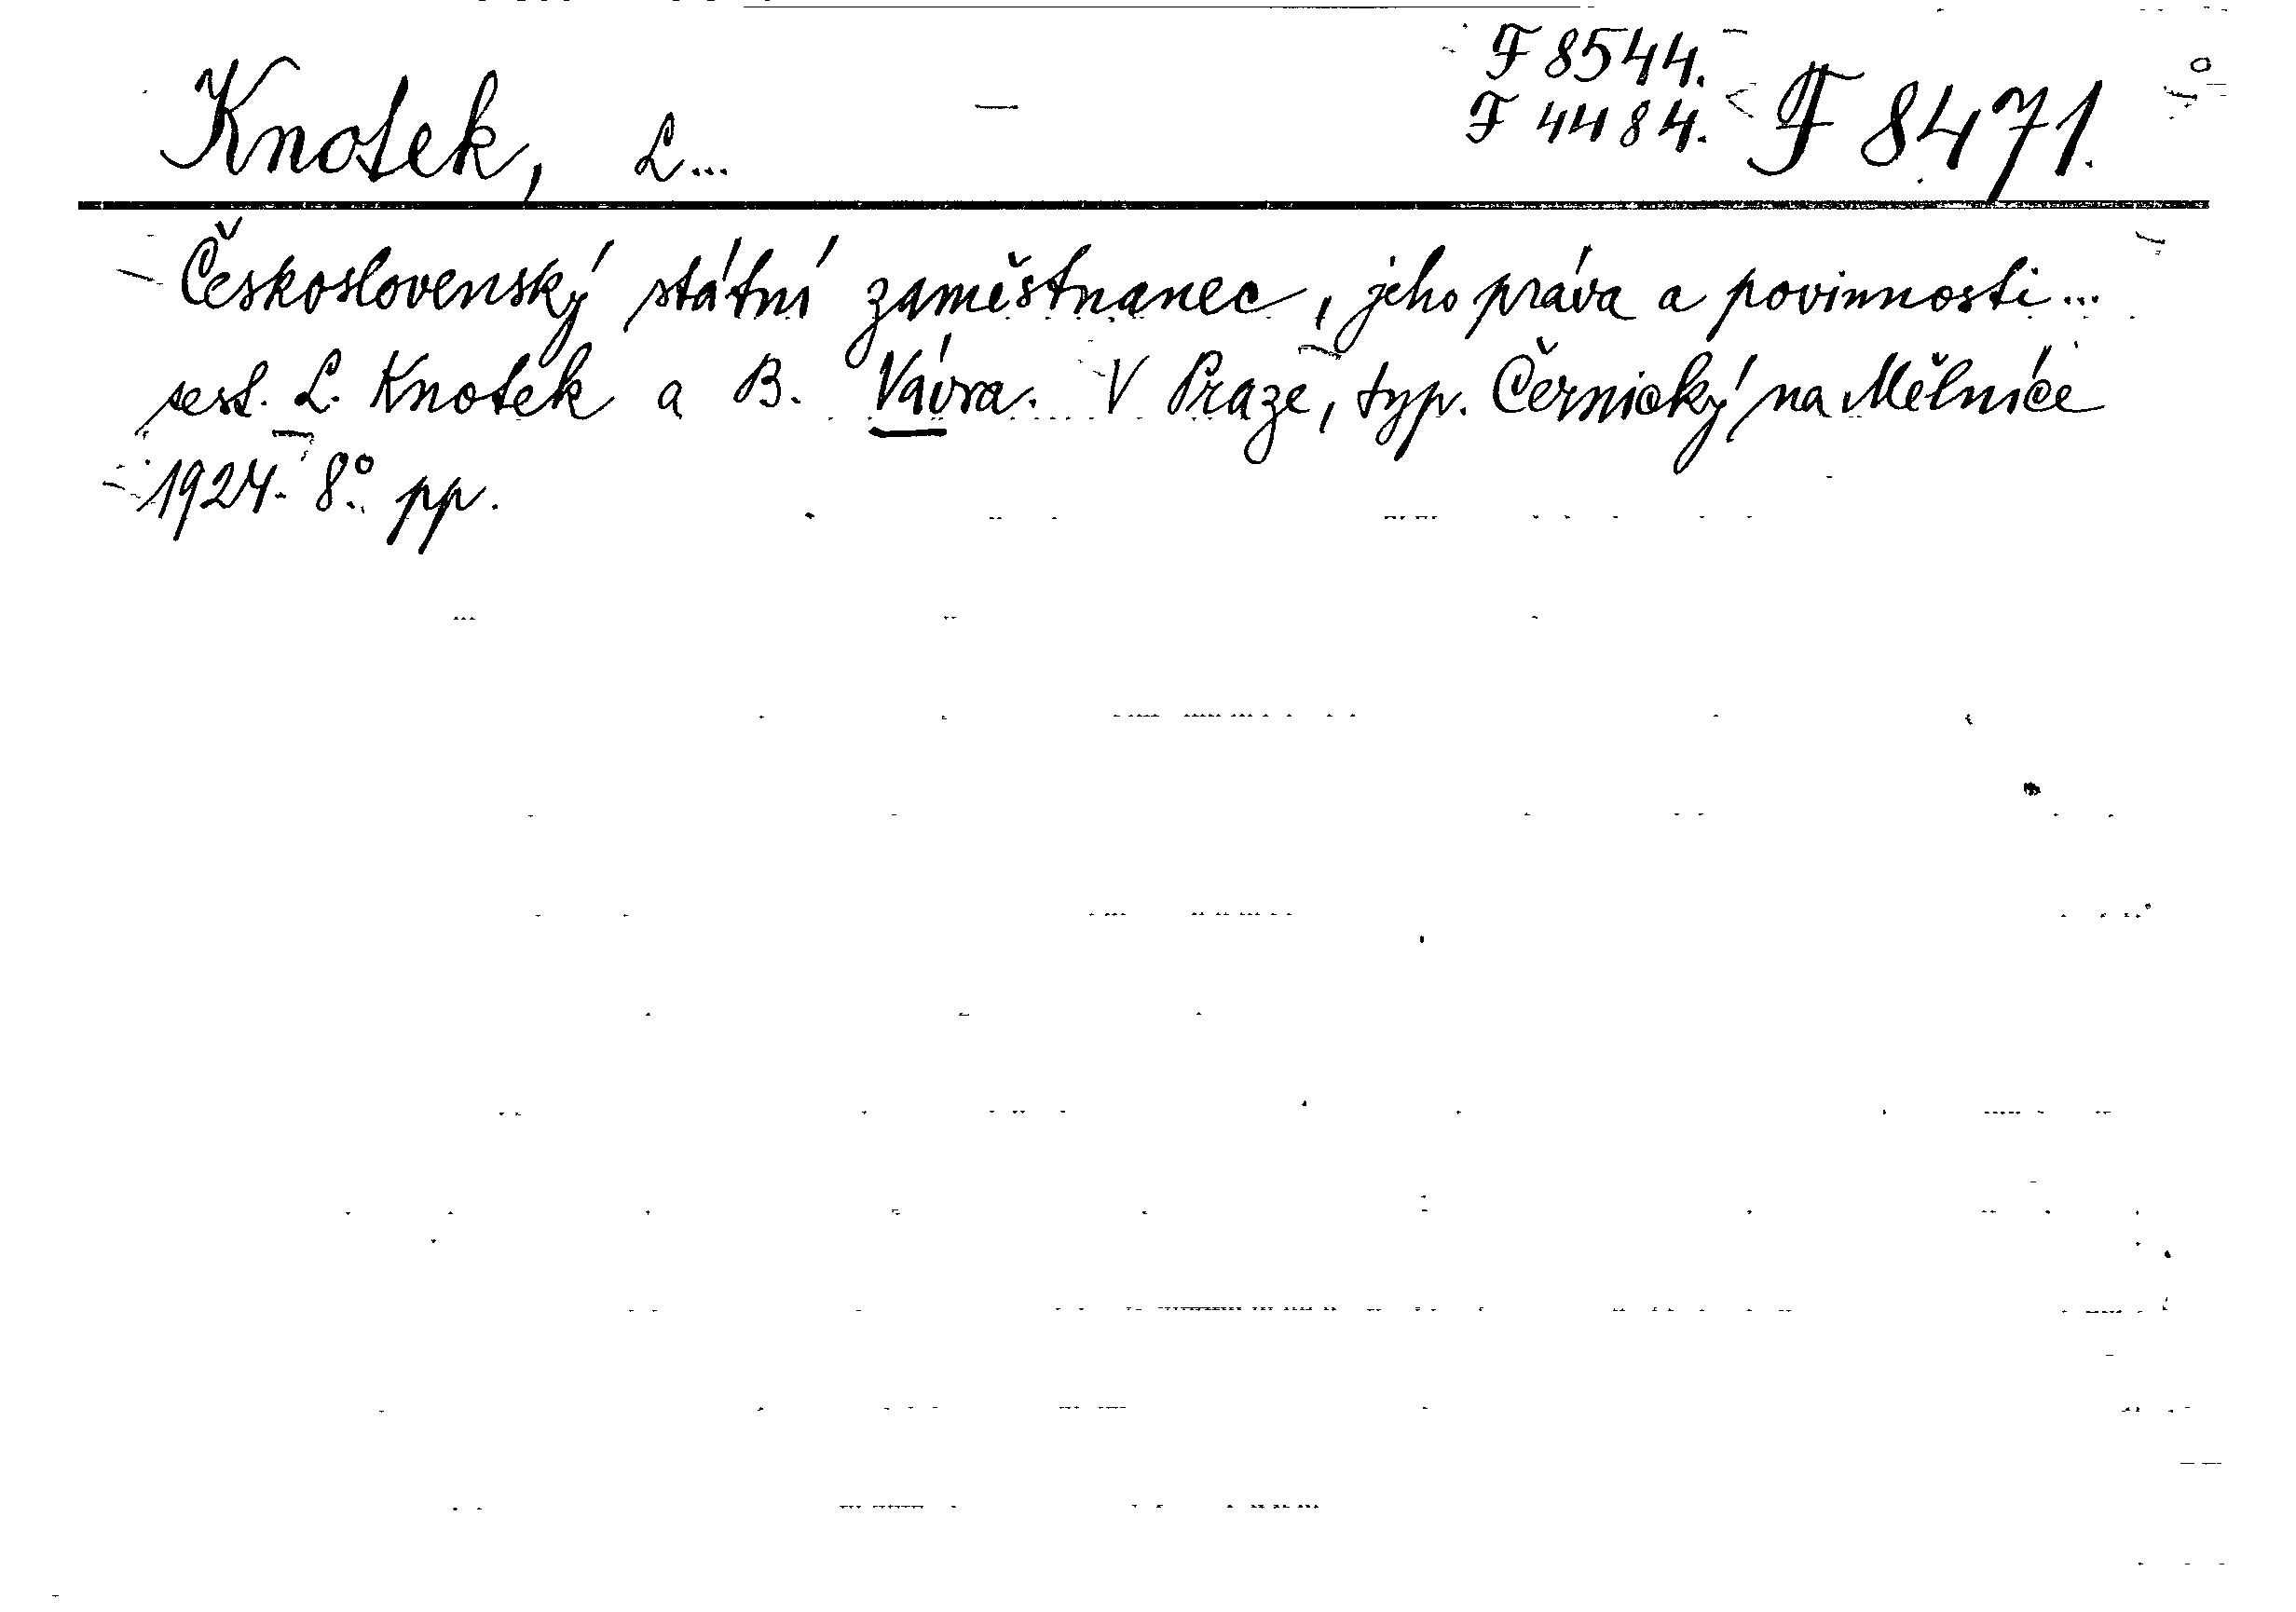 F 8544.
Knotek, L... F 4484. F 8471.
Československý státní zaměstnanec, jeho práva a povinnosti...
sest. L. Knotek a B. Vávra. V Praze, typ. Černický na Mělníce
1924. 8° pp.